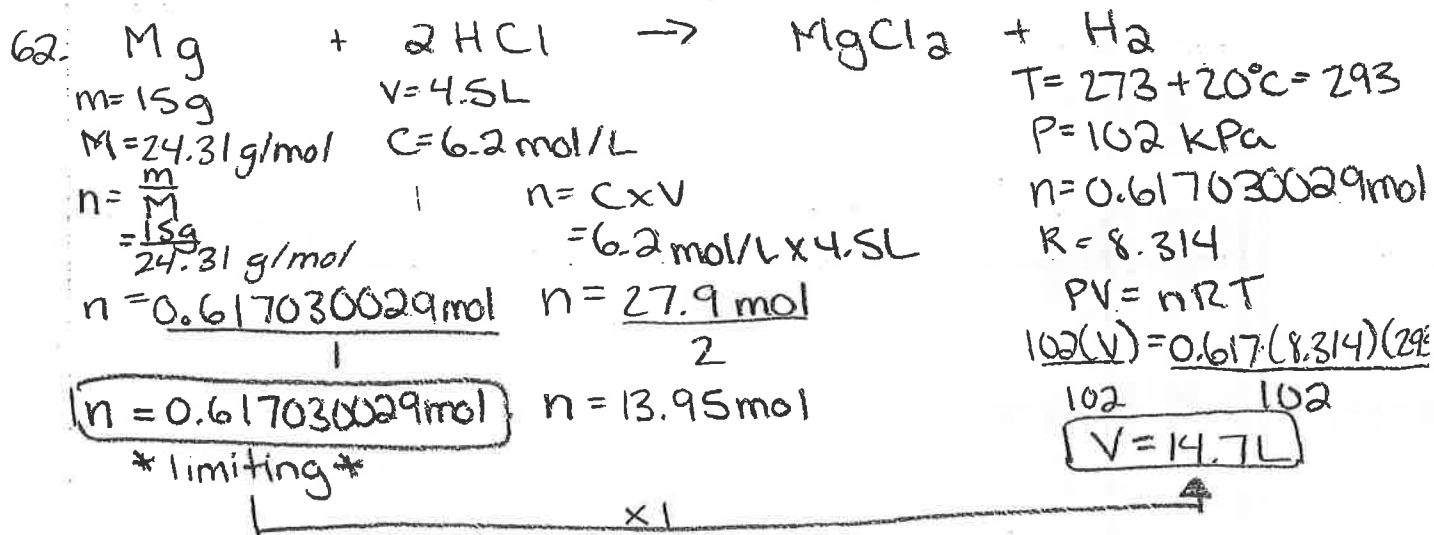 62. Mg + 2 HCl → MgCl2 + H2
m= 15g
M=24.31 g/mol
n= m/M
= 15g/24.31 g/mol
n = 0.617030029mol
1
n = 0.617030029mol
* limiting *
V= 4.5L
C= 6.2 mol/L
n= C×V
= 6.2 mol/L × 4.5L
n = 27.9 mol
2
n = 13.95mol
T= 273 + 20°C = 293
P= 102 kPa
n= 0.617030029mol
R = 8.314
PV= nRT
102(V) = 0.617·(8.314)(29
102 102
V = 14.7L
×1